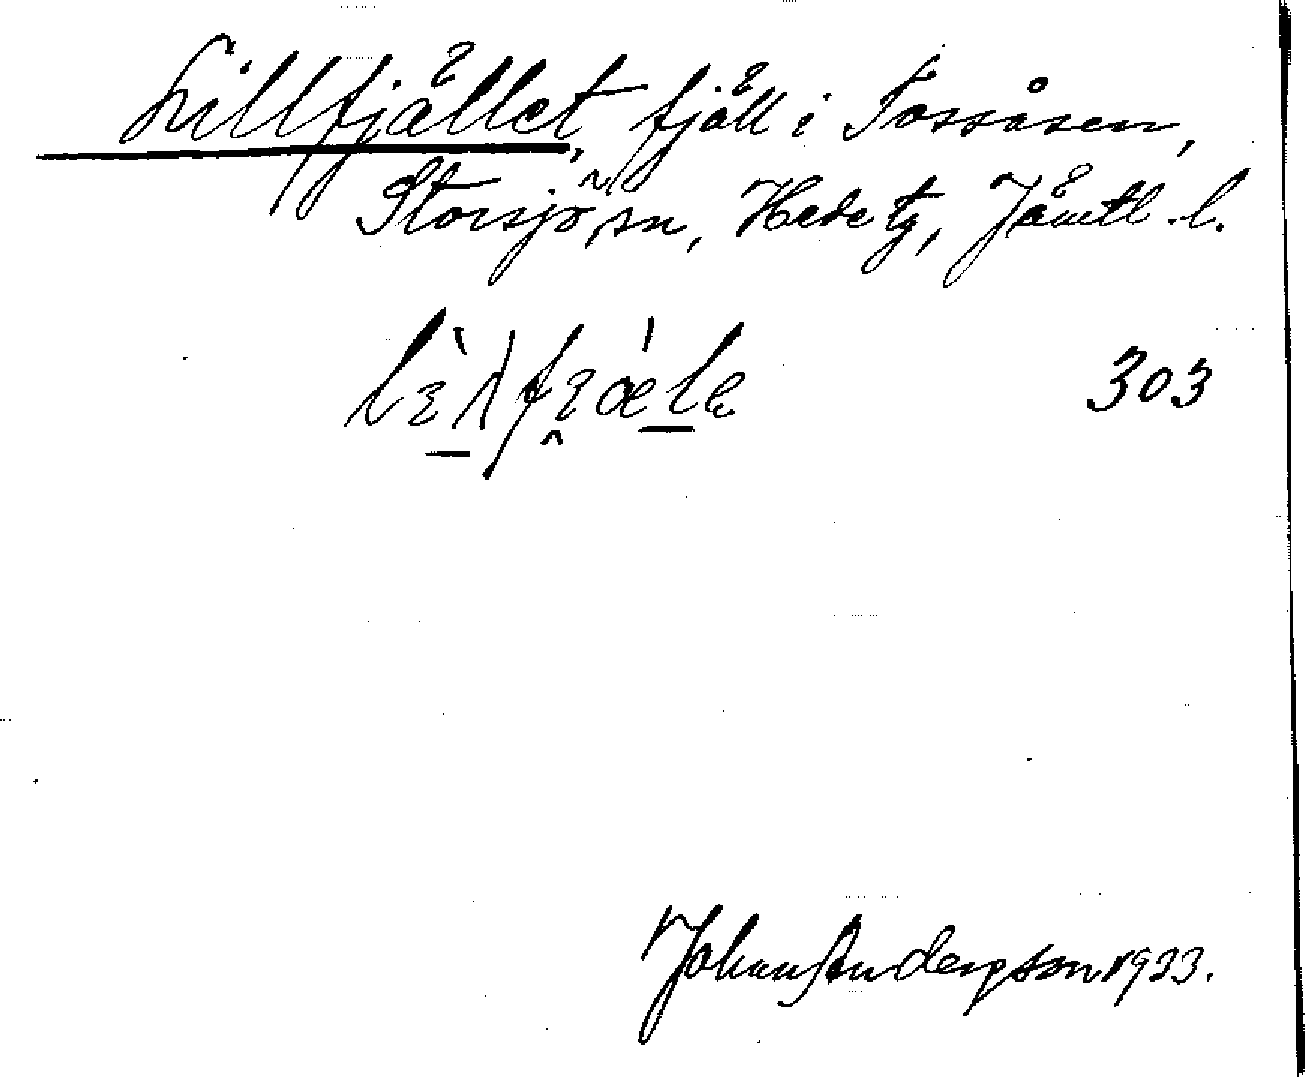 Lillfjället, fjäll i Tossåsen,
Storsjö sn, Hede tg, Jämtl. l.
303
Johan Andersson 1933.